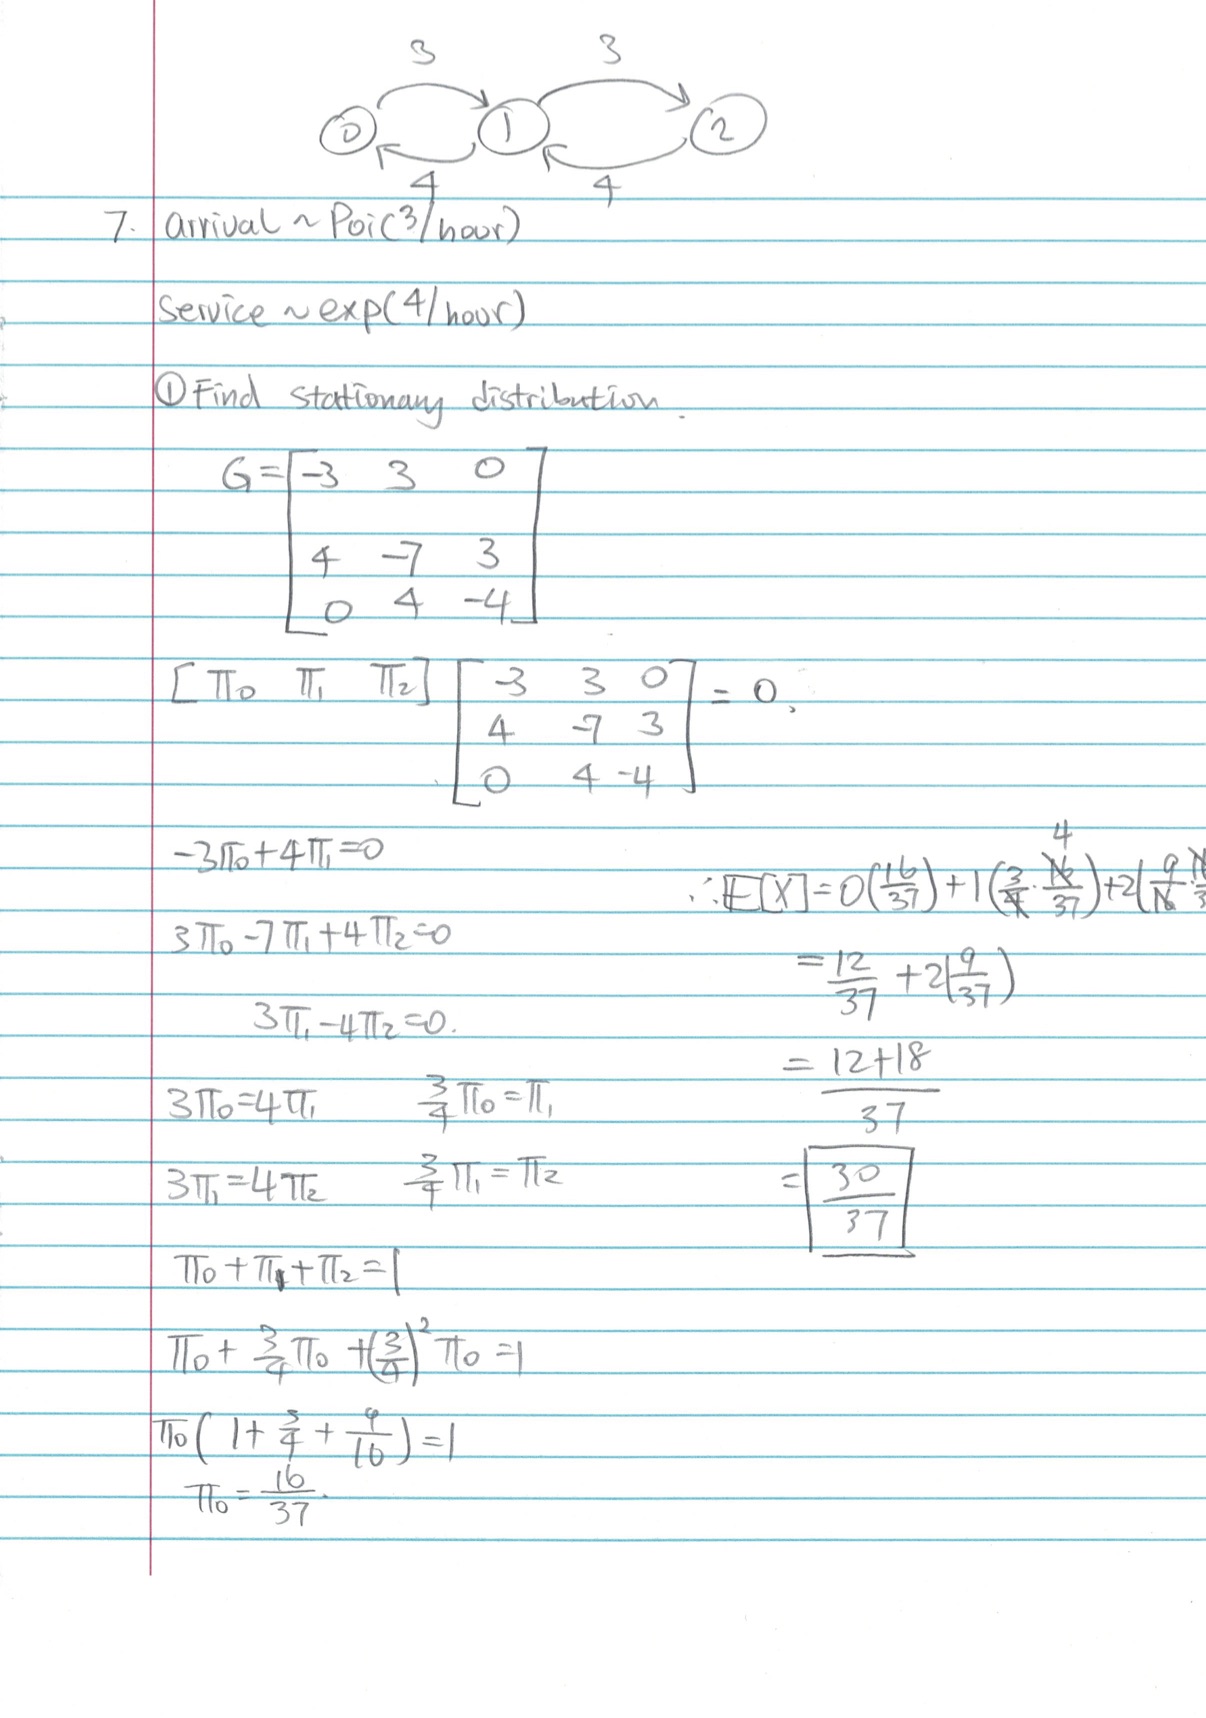 3 3
0 1 2
4 4
7. arrival ~ Poi(3/hour)
Service ~ exp(4/hour)
① Find stationary distribution.
G = [ -3 3 0
4 -7 3
0 4 -4 ]
[ π0 π1 π2 ] [ -3 3 0
4 -7 3
0 4 -4 ] = 0,
-3π0 + 4π1 = 0
3π0 - 7π1 + 4π2 = 0
3π1 - 4π2 = 0.
3π0 = 4π1 3/4 π0 = π1
3π1 = 4π2 3/4 π1 = π2
π0 + π1 + π2 = 1
π0 + 3/4 π0 + (3/4)² π0 = 1
π0 ( 1 + 3/4 + 9/16 ) = 1
π0 = 16/37.
4
∴ E[X] = 0(16/37) + 1(3/4 · 16/37) + 2(9/16 ·
= 12/37 + 2(9/37)
= 12+18/37
= 30/37